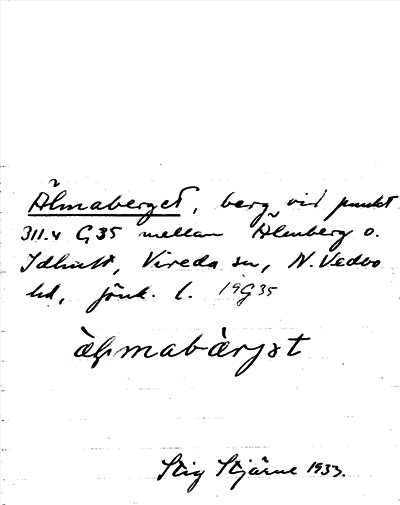 Älmaberget, berg vid punkt
311.4 G35 mellan Älenberg o.
Idhult, Vireda sn, N. Vedbo
hd, jönk. l. 19G35
Stig Stjärne 1933.